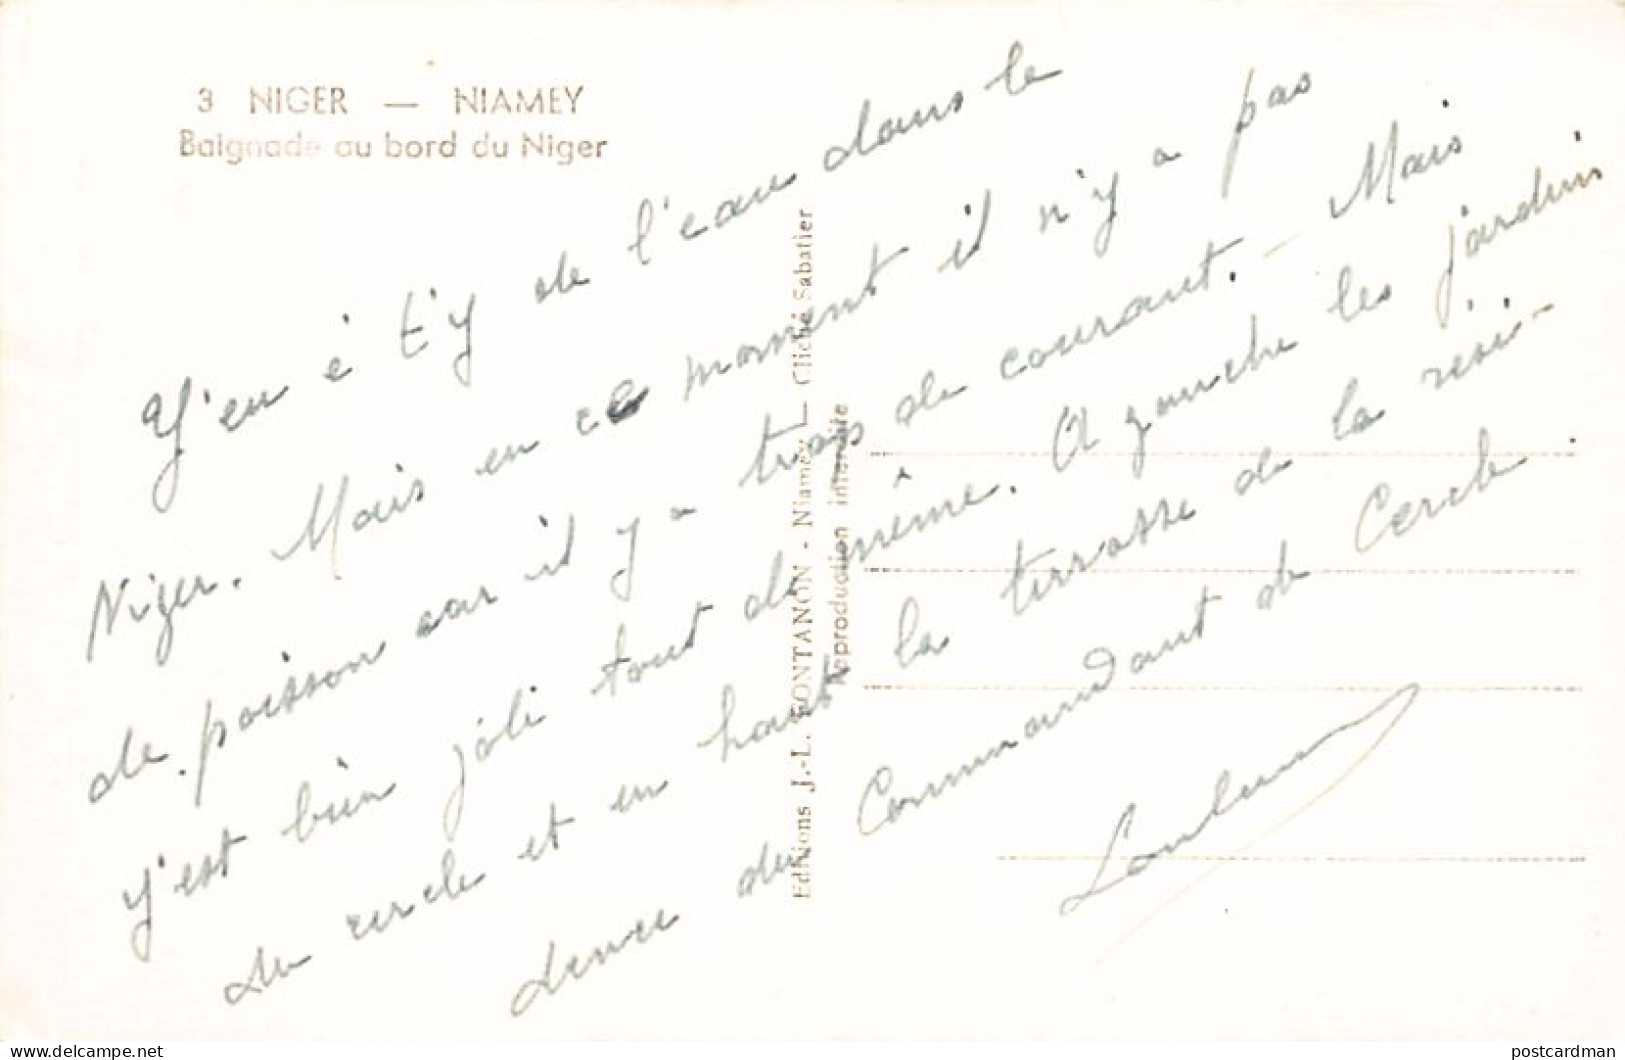 3 NIGER — NIAMEY
Baignade au bord du Niger
Y'en è t'y de l'eau dans le
Niger. Mais en ce moment il n'y a pas
de poisson car il y a trop de courant. — Mais
y'est bien joli tout de même. A gauche les jardins
du cercle et en haut la terrasse de la rési-
dence du Commandant de Cercle.
Editions J.-L. FONTANON - Niamey — Cliché Sabatier
Reproduction interdite
postcardman